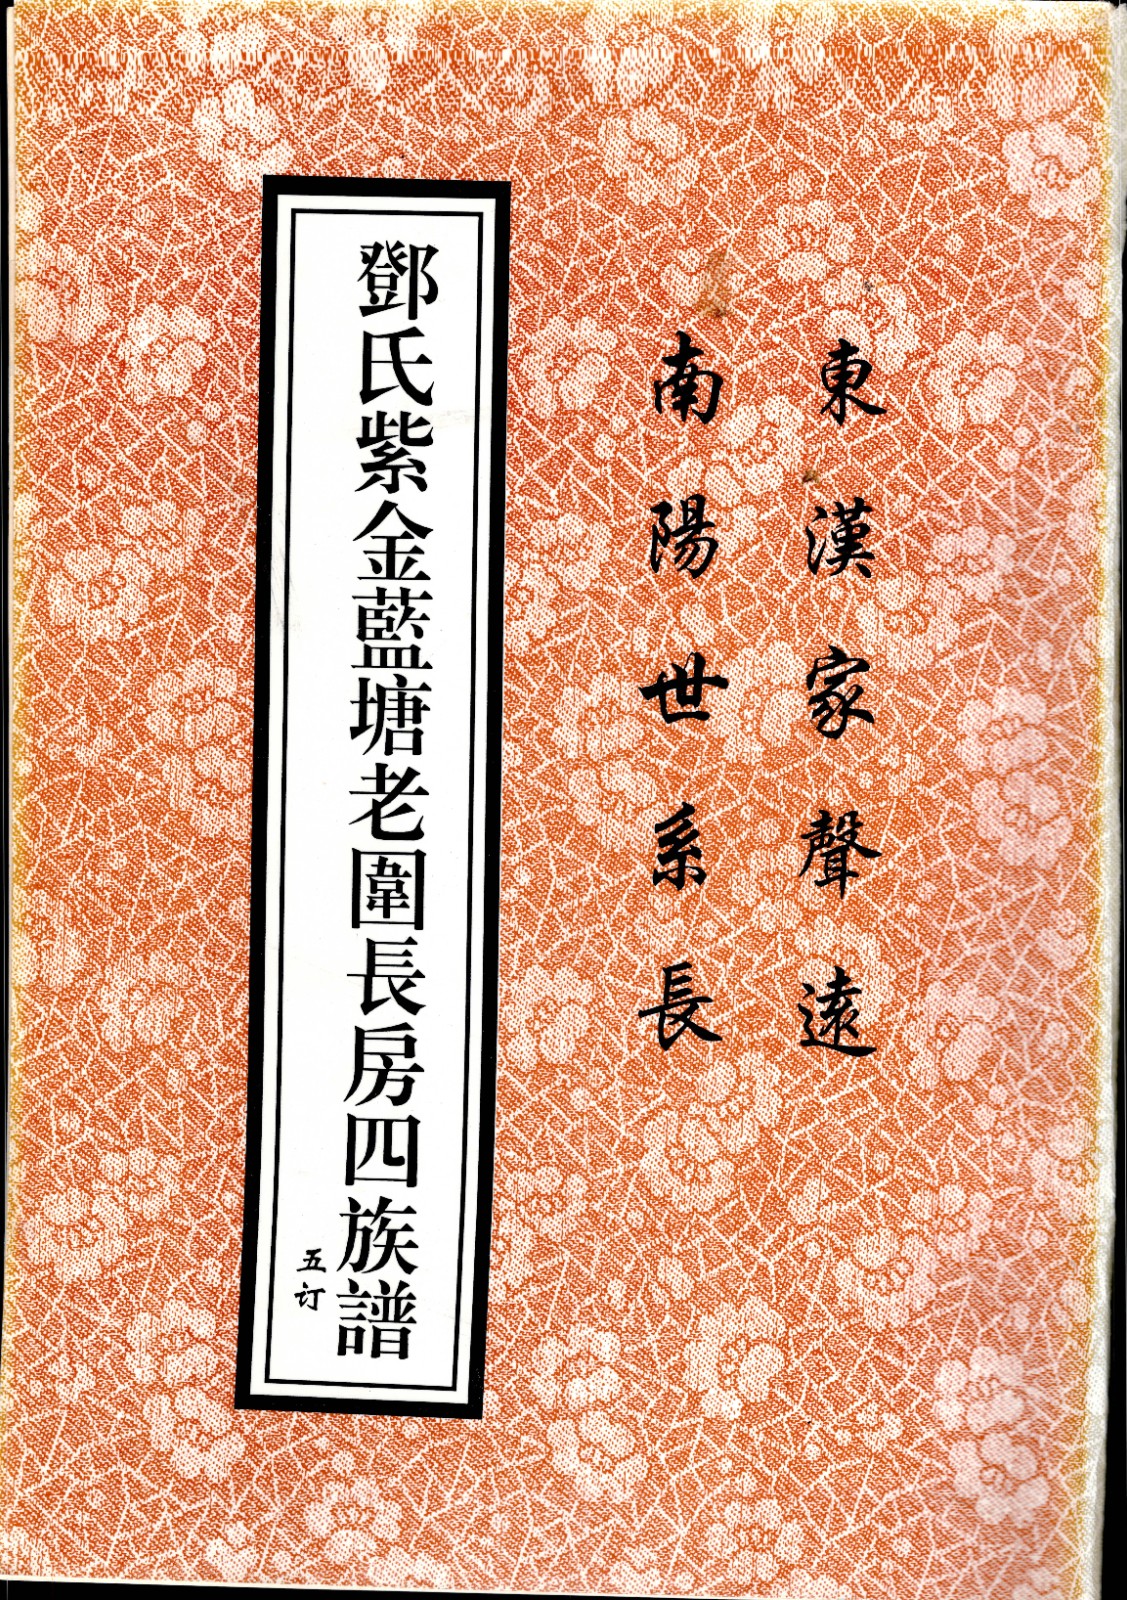 東漢家聲遠
南陽世系長
鄧氏紫金藍塘老圍長房四族譜
五订